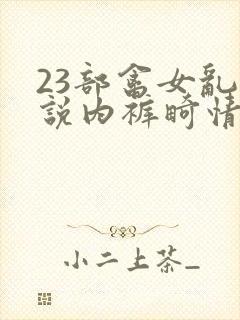 23部畬女亂
說内裤畸情
小二上茶_